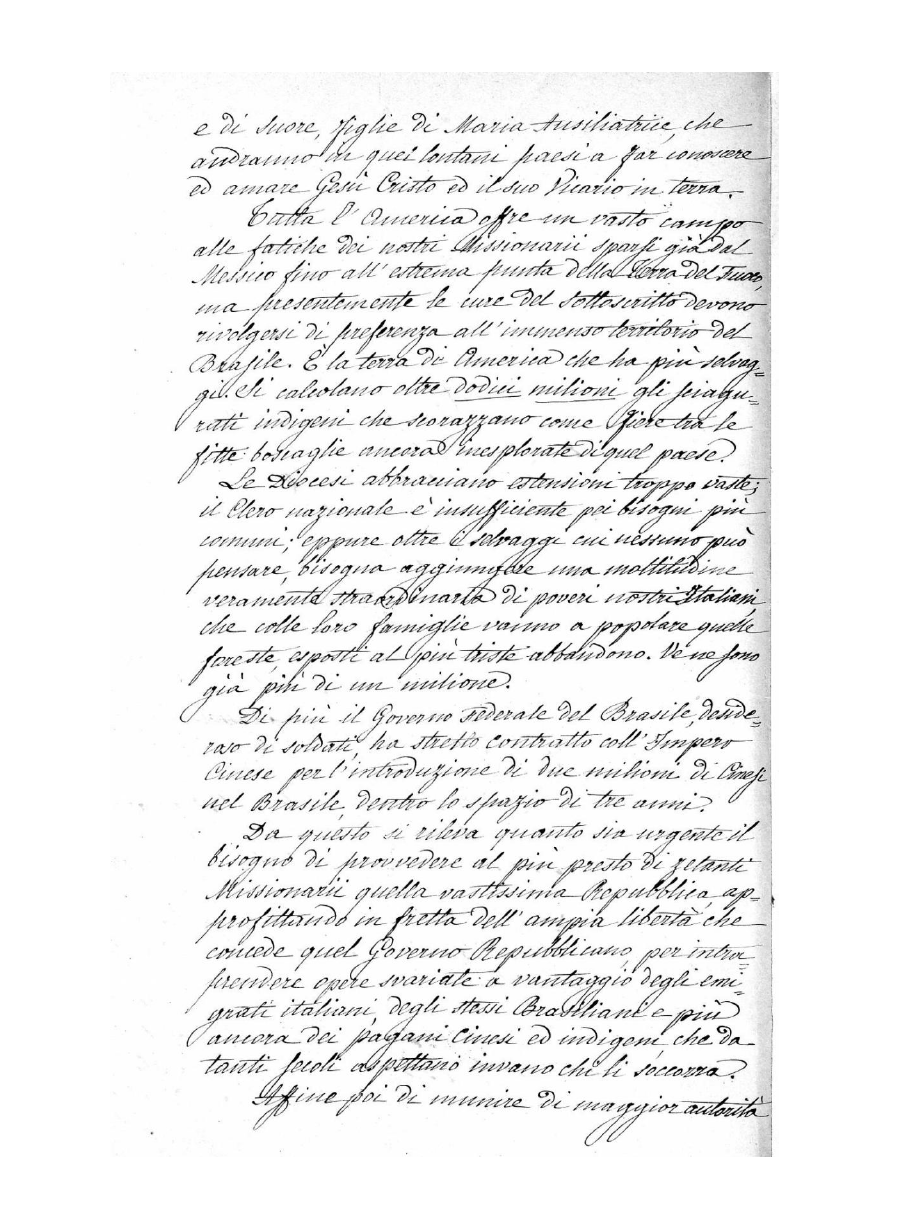 e di suore, figlie di Maria Ausiliatrice, che
andranno in quei lontani paesi a far conoscere
ed amare Gesù Cristo ed il suo Vicario in terra.
Tutta l'America offre un vasto campo
alle fatiche dei nostri Missionarii sparsi già dal
Messico fino all'estrema punta della Terra del Fuoco,
ma presentemente le cure del sottoscritto devono
rivolgersi di preferenza all'immenso territorio del
Brasile. È la terra di America che ha più selvag=
gi. Si calcolano oltre dodici milioni gli sciagu=
rati indigeni che scorazzano come fiere tra le
fitte boscaglie ancora inesplorate di quel paese.
Le Diocesi abbracciano estensioni troppo vaste;
il Clero nazionale è insufficiente pei bisogni più
comuni; eppure oltre i selvaggi cui nessuno può
pensare, bisogna aggiungere una moltitudine
veramente straordinaria di poveri nostri Italiani,
che colle loro famiglie vanno a popolare quelle
foreste, esposti al più triste abbandono. Ve ne sono
già più di un milione.
Di più il Governo Federale del Brasile, deside=
roso di soldati, ha stretto contratto coll'Impero
Cinese per l'introduzione di due milioni di Cinesi
nel Brasile, dentro lo spazio di tre anni.
Da questo si rileva quanto sia urgente il
bisogno di provvedere al più presto di zelanti
Missionarii quella vastissima Repubblica, ap=
profittando in fretta dell'ampia libertà che
concede quel Governo Repubblicano, per intra=
prendere opere svariate a vantaggio degli emi=
grati italiani, degli stessi Brasiliani e più
ancora dei pagani cinesi ed indigeni, che da
tanti secoli aspettano invano chi li soccorra.
Affine poi di munire di maggior autorità